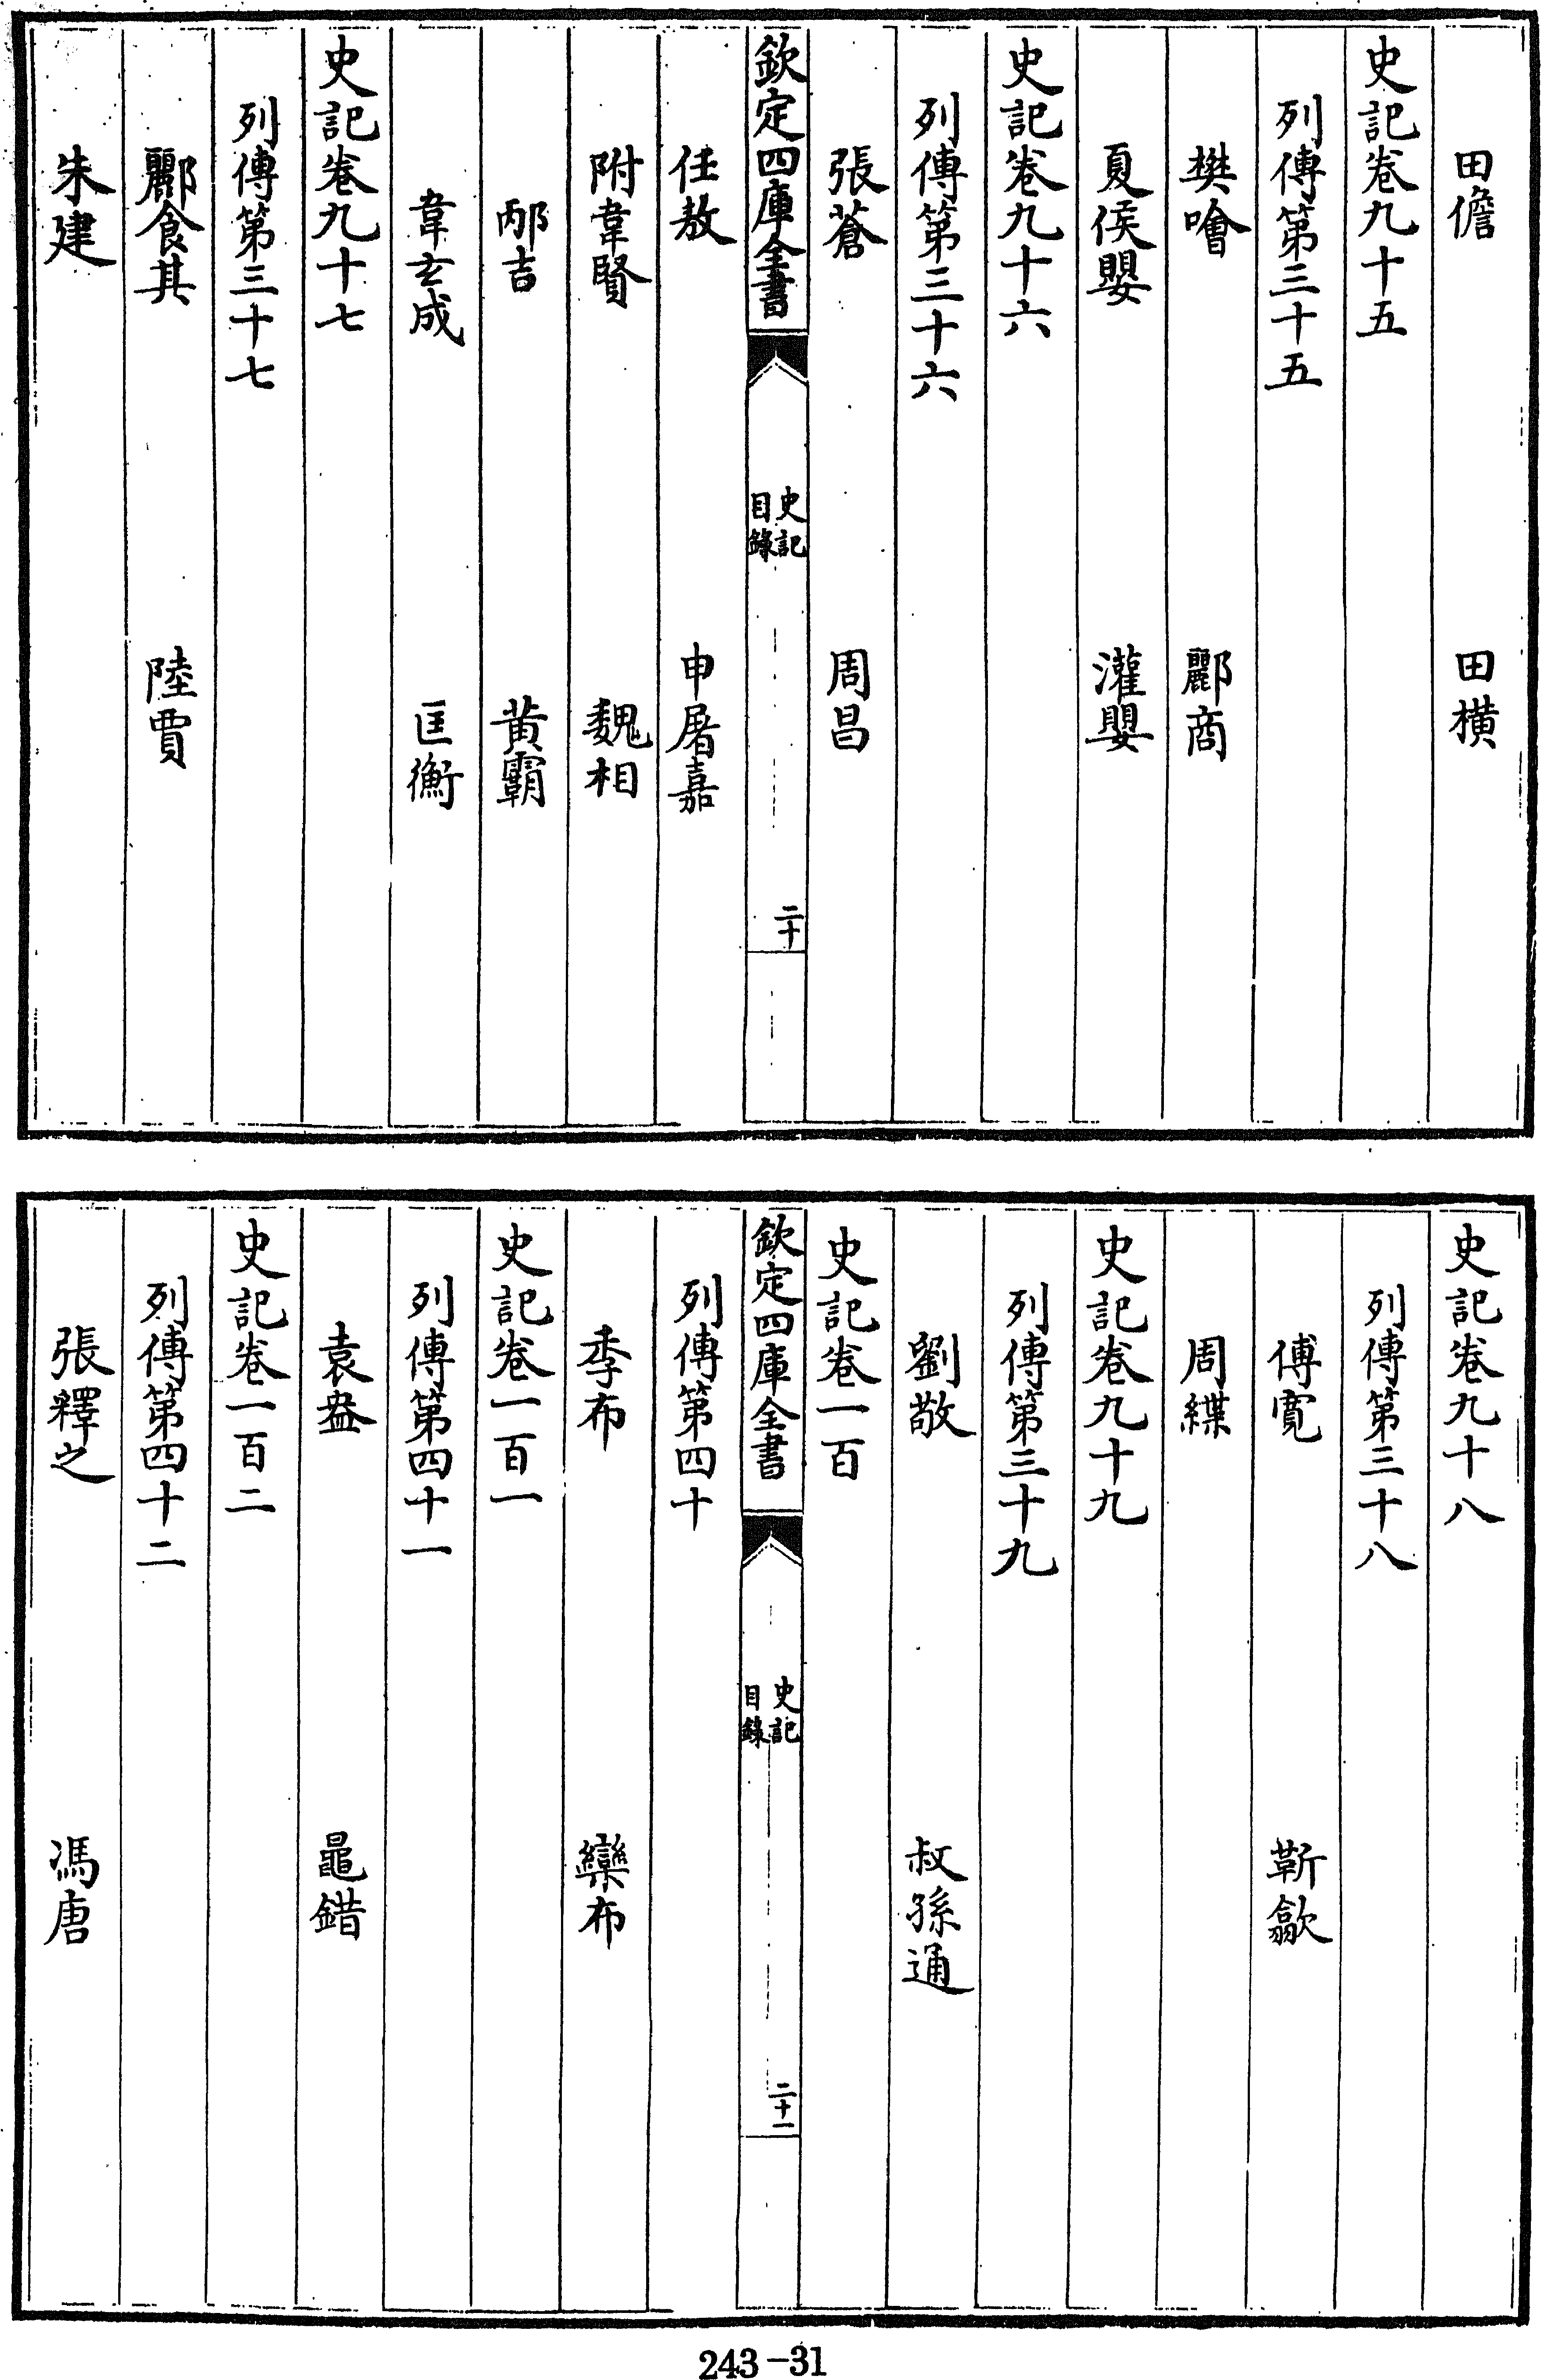 田儋　田橫
史記卷九十五
列傳第三十五
樊噲　酈商
夏侯嬰　灌嬰
史記卷九十六
列傳第三十六
張蒼　周昌
欽定四庫全書
史記目錄
二十
任敖　申屠嘉
附韋賢　魏相
邴吉　黃霸
韋玄成　匡衡
史記卷九十七
列傳第三十七
酈食其　陸賈
朱建
史記卷九十八
列傳第三十八
傅寬　靳歙
周緤
史記卷九十九
列傳第三十九
劉敬　叔孫通
史記卷一百
欽定四庫全書
史記目錄
二十一
列傳第四十
季布　欒布
史記卷一百一
列傳第四十一
袁盎　鼂錯
史記卷一百二
列傳第四十二
張釋之　馮唐
243-31